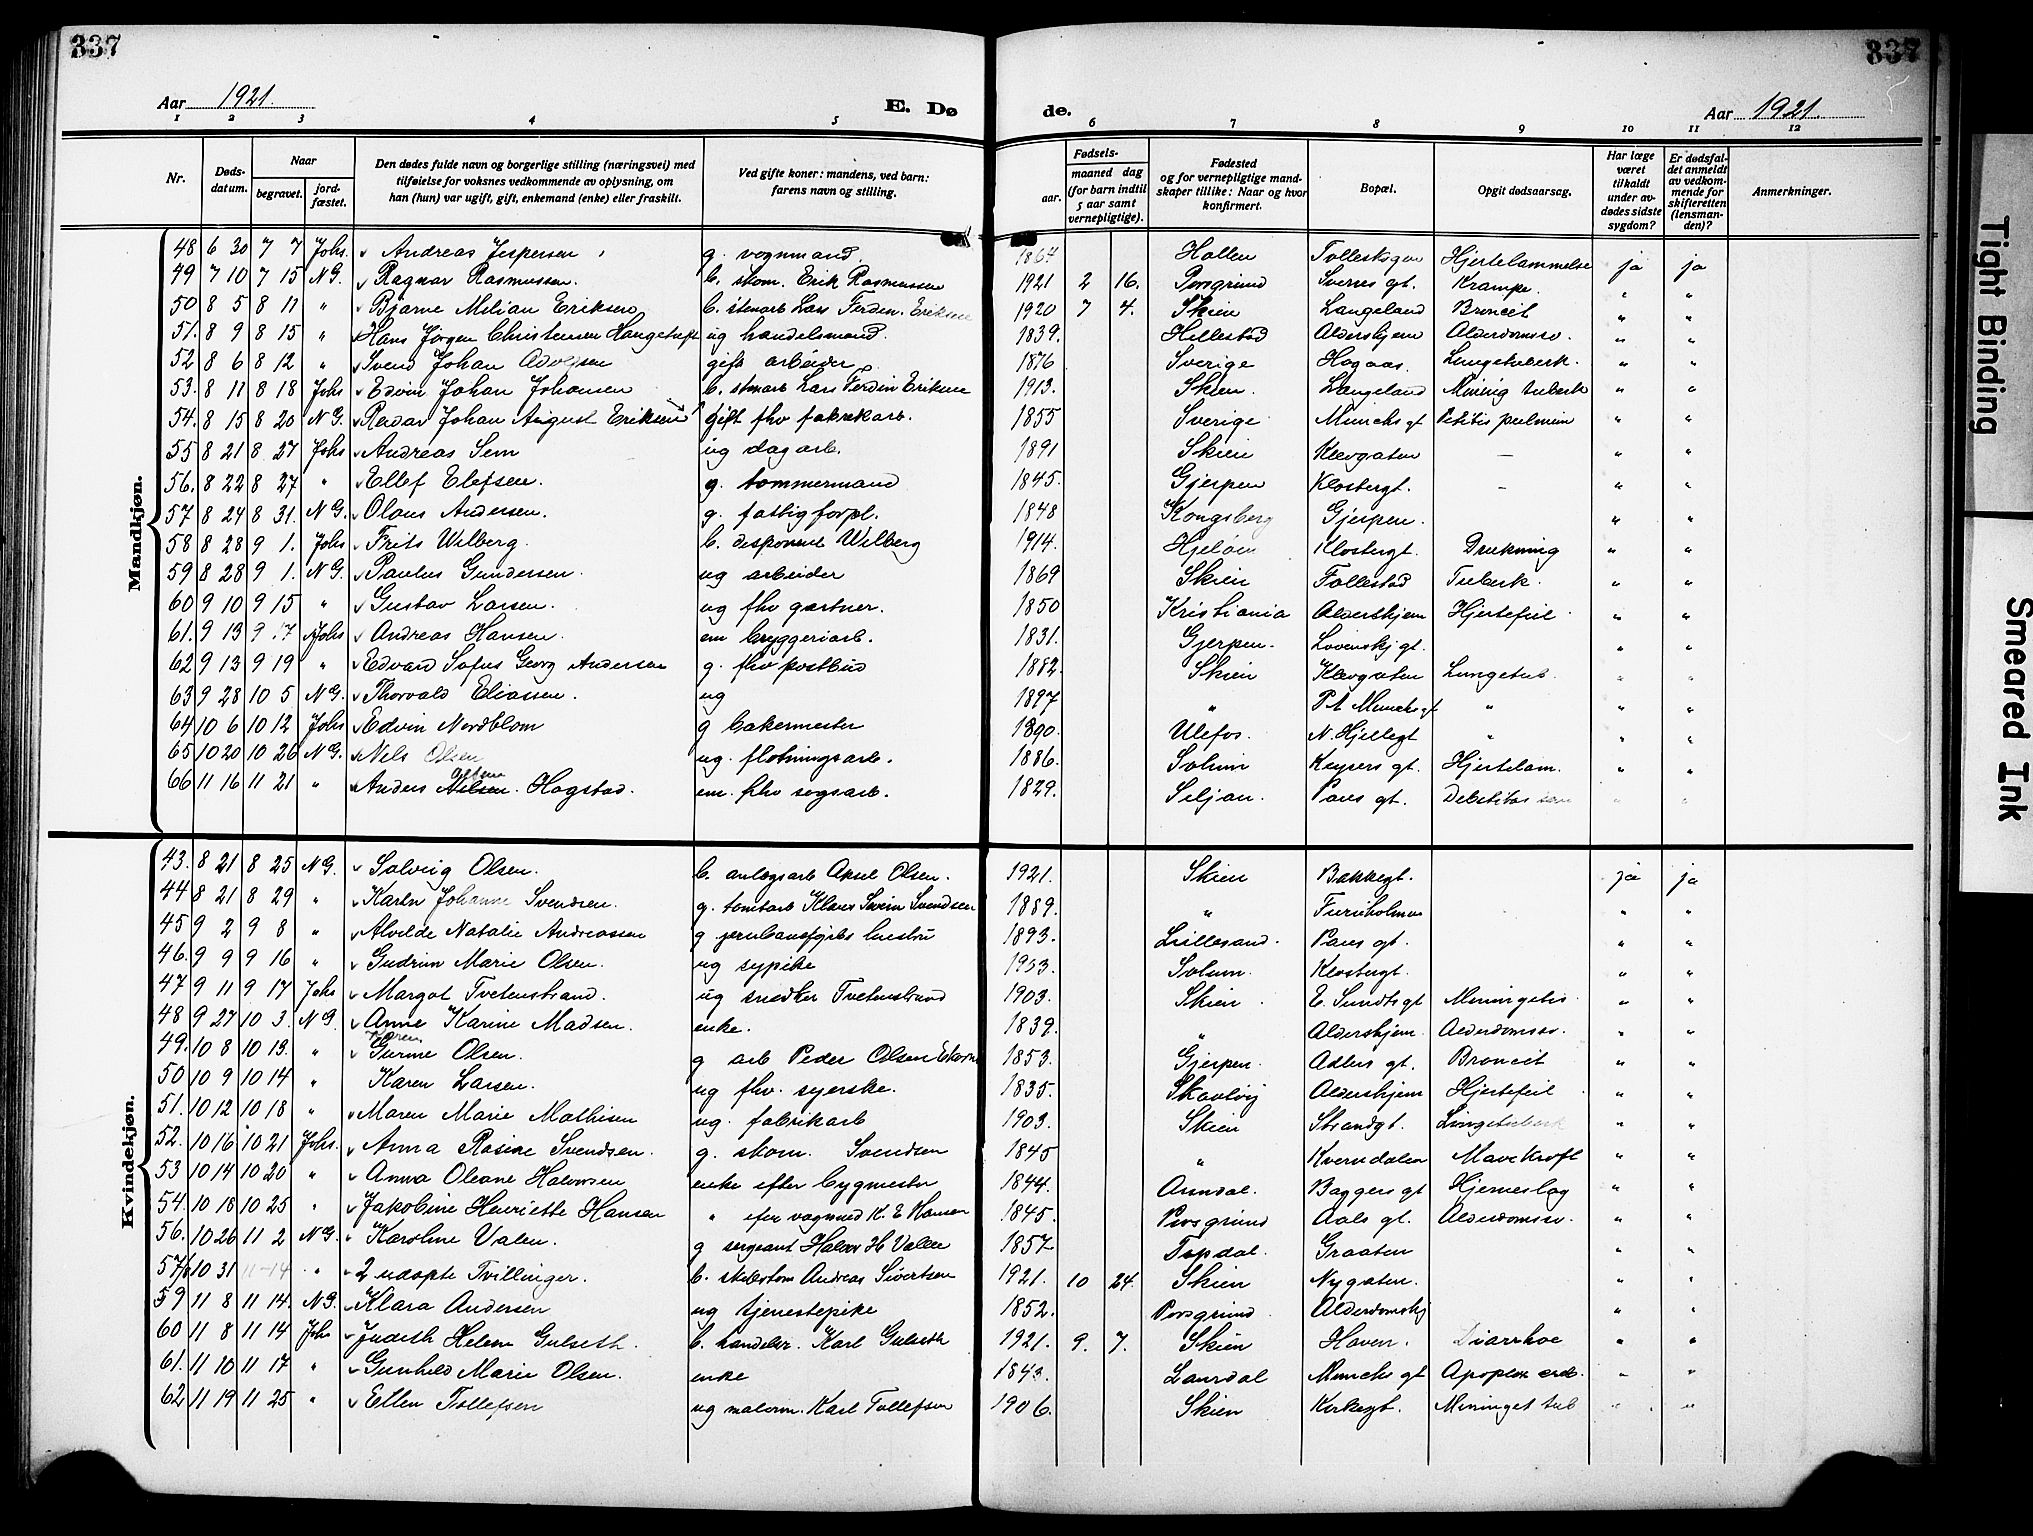 337
337
Aar 1921.
E. Dø
de.
Aar 1921.
1 2 3 4 5 6 7 8 9 10 11 12
Nr.
Døds-datum.
Naar
begravet.
jord-fæstet.
Den dødes fulde navn og borgerlige stilling (næringsvei) med tilføielse for voksnes vedkommende av oplysning, om han (hun) var ugift, gift, enkemand (enke) eller fraskilt.
Ved gifte koner: mandens, ved barn: farens navn og stilling.
Fødsels-
aar.
maaned dag
(for barn indtil 5 aar samt vernepligtige).
Fødested
og for vernepligtige mandskaper tillike: Naar og hvor konfirmert.
Bopæl.
Opgit dødsaarsag.
Har læge været tilkaldt under avdødes sidste sygdom?
Er dødsfaldet anmeldt av vedkommende for skifteretten (lensmanden)?
Anmerkninger.
Mandkjøn.
48 6 30 7 7 Johs. Andreas Jespersen g. vognmand. 1867 Hollen Hjertelammelse ja ja
49 7 10 7 15 N G. Ragnar Rasmussen. b. skom. Erik Rasmussen 1921 2 16. Porsgrund Sverres gt. Krampe. " "
50 8 5 8 11 " Bjarne Milian Eriksen b. stenarb Lars Ferdin. Eriksen 1920 7 4. Skien Langeland Broncit " "
51. 8 9 8 15 " Hans Jørgen Christensen ug handelsmand. 1839. Hillestad Aldershjem Alderdomssv. " "
52 8 6 8 12 " Svend Johan Adolfsen gift arbeider 1876 Sverige Hogaas. Lungetuberk. " "
53. 8 11 8 18 Johs Edvin Johan Johansen b. stenarb Lars Ferdin Eriksen 1913. Skien. Langeland tuberk " "
54. 8 15 8 20 N G. Johan August Eriksen gift fhv fabrikarb. 1855 Sverige Munchs gt " "
55 8 21 8 27 Johs Andreas Sem ug dagarb. 1891 Skien Klevgaten – " "
56. 8 22 8 27 " Ellef Elefsen. g. tommermand 1845. Gjerpen Klostergt. – " "
57 8 24 8 31. N G. Olaus Andersen. g. fattigforpl. 1848 Kongsberg Gjerpen. " "
58 8 28 9 1. Johs Frits Wilberg. b. disponent Wilberg 1914. Klostergt. Drukning " "
59 8 28 9 1. N G. Paulus Gundersen. ug arbeider 1869 Skien Follestad Tuberk. " "
60 9 10 9 15 " Gustav Larsen. ug fhv gartner. 1850 Kristiania Aldershjem Hjertefeil " "
61. 9 13 9 17 Johs Andreas Hansen. em bryggeriarb. 1831. Gjerpen. Lovenskj gt. " "
62 9 13 9 19 " Edvard Sofus Georg Andersen g. fhv postbud 1882. Skien Klevgaten Lungetub. " "
63 9 28 10 5 N G. Thorvald Eliassen. ug 1897 " P A Munchs gt " " "
64 10 6 10 12 Johs Edvin Nordblom g bakermester 1890. Ulefos. N. Hjellegt " " "
65 10 20 10 26 N G. Nils Olsen ug. flotningsarb. 1886. Solum Keysers gt. Hjertelam. " "
66 11 16 11 21 " Anders Nilsen Hogstad. em. fhv sagsarb. 1829. Siljan. Paus gt. " "
Kvindekjøn.
43. 8 21 8 25 N G. Solveig Olsen. b. anlægsarb Aksel Olsen. 1921. Skien Bakkegt. ja ja
44 8 21 8 29 " Karen Johanne Svendsen. g. tomtarb Klaus Svein Svendsen 1889. " Furuholmen " "
45 9 2 9 8 " Alvilde Natalie Andreassen g 1893. Lillesand. Paus gt. " "
46. 9 9 9 16 " Gudrun Marie Olsen. ug sypike Solum. Klostergt. " "
47 9 11 9 17 Johs Margot Tvetenstrand. ug snedker Tvetenstrand 1903. Skien E. Sundts gt " "
48 9 27 10 3. N G. Anne Karine Madsen. enke. 1839. " Aldershjem. Alderdomssv. " "
49. 10 8 10 13. " Karen Gurine Olsen. g arb Peder Olsen 1853. Gjerpen. Adlers gt. Broncit " "
50 10 9 10 14 " Karen Larsen. ug fhv. syerske. 1835. Aldershjem Hjertefeil " "
51. 10 12 10 18 " Maren Marie Mathisen ug. fabrikarb 1903. Skien Strandgt. Lungetuberk " "
52. 10 16 10 21 Johs. Anna Rosine Svendsen. g. skom. Svendsen 1845 " Kverndalen Mavekræft " "
53 10 14 10 20 " Anna Oleane Halvorsen enke efter bygmester 1844. Arendal. Baggers gt Hjerneslag " "
54. 10 18 10 25 " Jakobine Henriette Hansen " efter vognmd K. E Hansen 1845. Porsgrund Aals gt. Alderdomssv. " "
56. 10 26 11 2 N G. Karoline Valen. g sergeant Halvor H Valen 1857 Topdal. Graaten " "
57/8 10 31 11-14 " 2 udøpte Tvillinger. b. Andreas Sivertsen 1921. 10 24. Skien Nygaten. " "
59 11 8 11 14. N G. Klara Andersen ug tjenestepike 1852. Porsgrund Alderdomshj " "
60 11 8 11 14 Johs Judith Helene Gulseth. b. handelsr. Karl Gulseth 1921. 9. 7. Skien Haven. Diarrhoe " "
61. 11 10 11 17 " Gunhild Marie Olsen. enke 1843. Laurdal Munchs gt " "
62 11 19 11 25 " Ellen Tollefsen ug malerm. Karl Tollefsen 1906. Skien Kirkegt. Mininget tub " "
Tight Binding
Smeared Ink